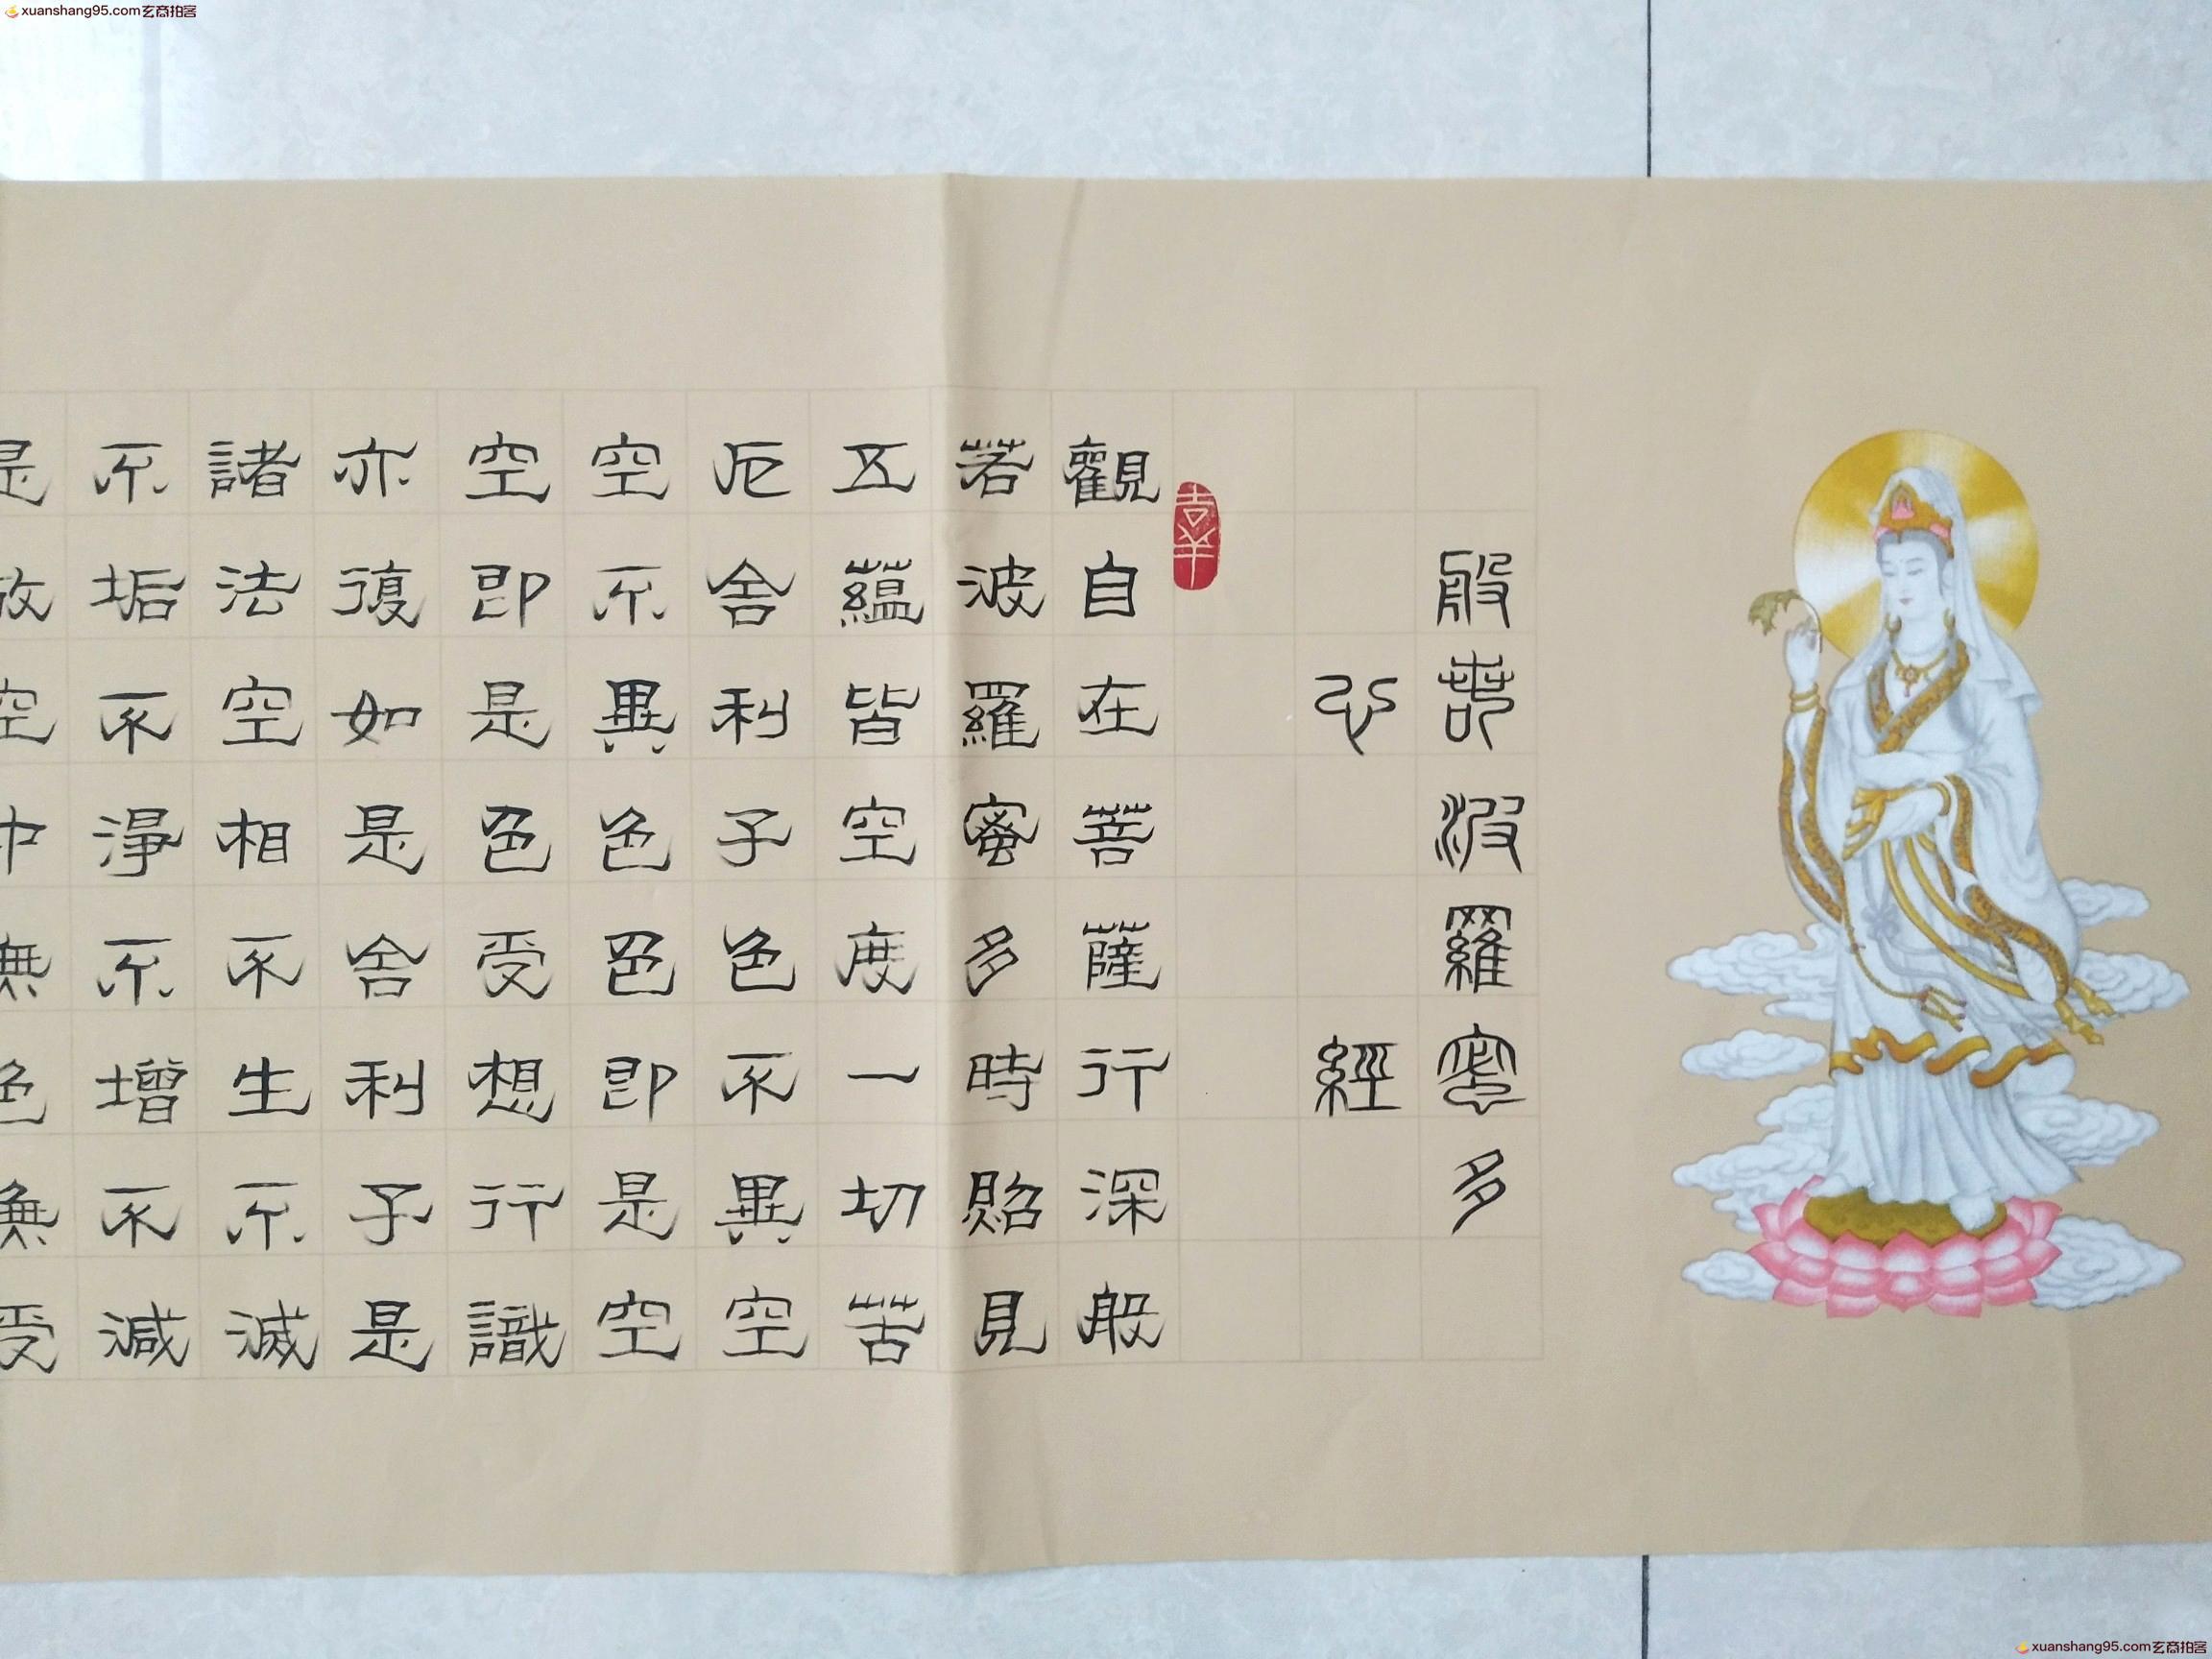 xuanshang95.com玄商拍客
般若波羅蜜多
心經
幸
觀自在菩薩行深般
若波羅蜜多時照見
五蘊皆空度一切苦
厄舍利子色不異空
空不異色色即是空
空即是色受想行識
亦復如是舍利子是
諸法空相不生不滅
不垢不淨不增不減
是故空中無色無受
xuanshang95.com玄商拍客